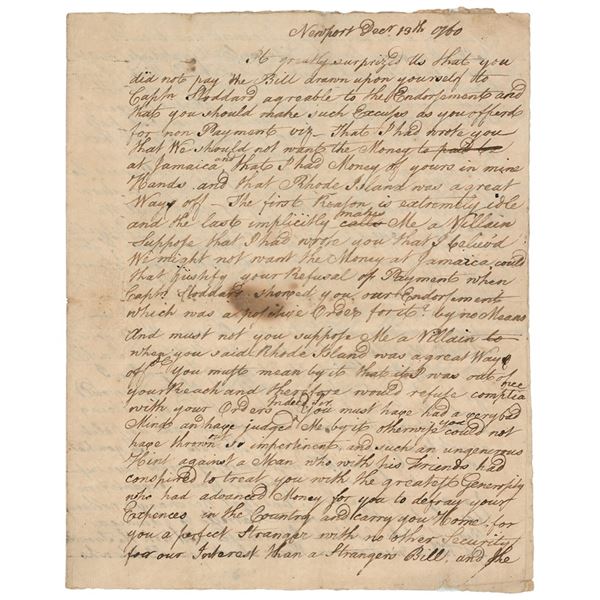 Newport Decr 13th 1760
It greatly surprized Us that you
did not pay the Bill drawn upon yourself to
Captn Stoddard agreable to the Endorsement and
that you should make such Excuses as you offerd
for non Payment viz That I had wrote you
that We should not want the Money to
at Jamaica and that I had Money of yours in mine
Hands and that Rhode Island was a great
Way off — The first Reason is extremtly idle
and the last implicitly calls makes Me a Villain
Suppose that I had wrote you that I believd
We might not want the Money at Jamaica could
that justify your Refusal of Payment when
Captn Stoddard showed you our Endorsement
which was a positive Order for it by no Means
And must not you suppose Me a Villain to
when you said Rhode Island was a great Way
of You must mean by it that if I was out of
your Reach and therefore would refuse complia nce
with your Orders Indeed Sir You must have had a very bad
Mind and have judged Me by it otherwise you could not
have thrown so impertinent, and such an ungenerous
Hint against a Man who with his Friends had
conspired to treat you with the greatest Generosity
who had advanced Money for you to defray your
Expences in the Country and carry you Home, for
you a perfect Stranger with no other Security
for our Interest than a Strangers Bill, and the